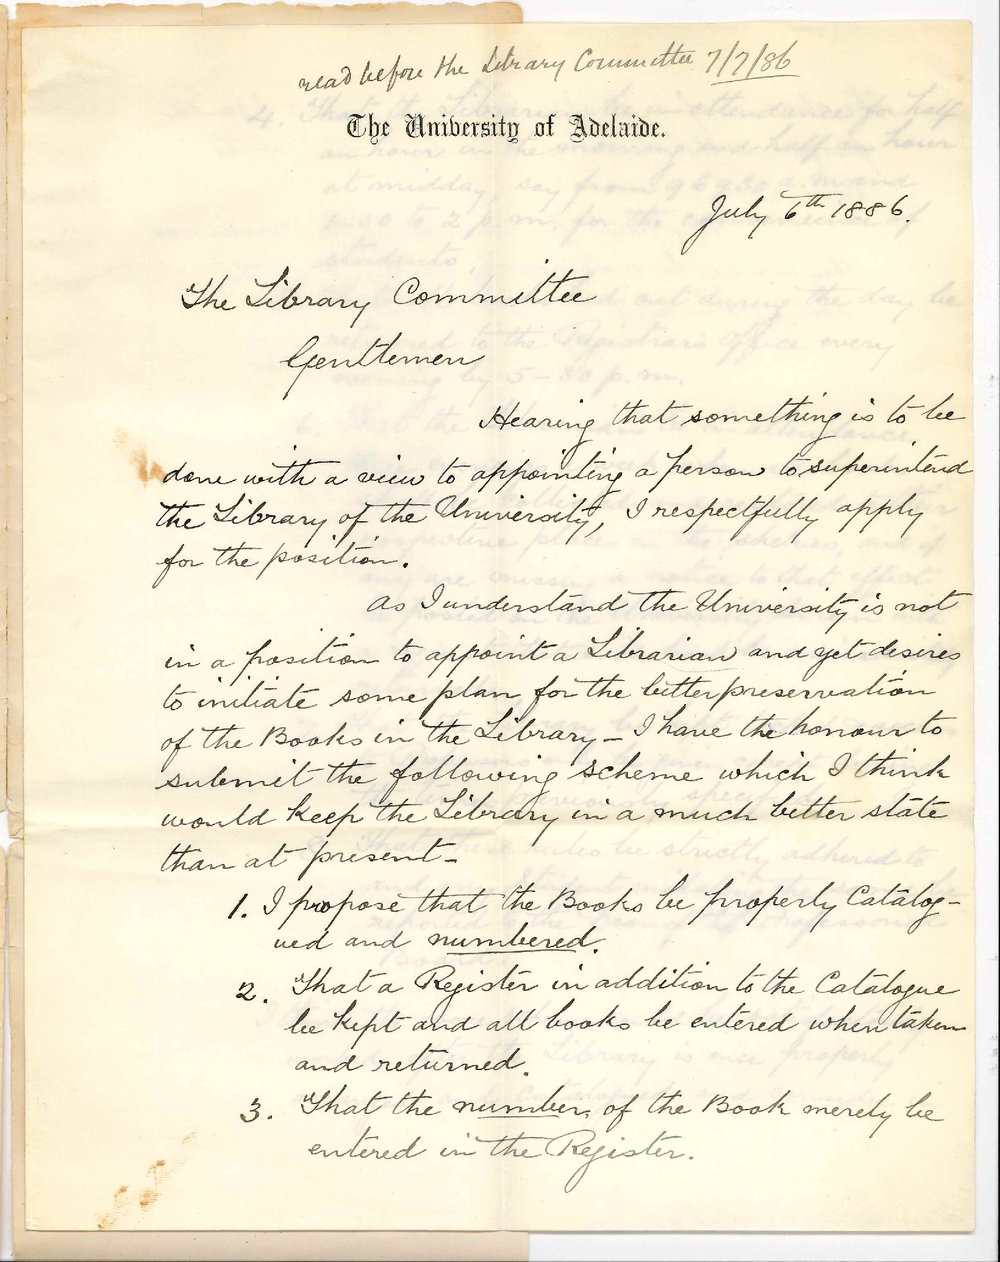 read before the Library Committee 7/7/86
The University of Adelaide.
July 6th 1886.
The Library Committee
Gentlemen
Hearing that something is to be
done with a view to appointing a person to superintend
the Library of the University, I respectfully apply
for the position.
As I understand the University is not
in a position to appoint a Librarian and yet desires
to initiate some plan for the better preservation
of the Books in the Library – I have the honour to
submit the following scheme which I think
would keep the Library in a much better state
than at present –
1. I propose that the Books be properly Catalog-
ued and numbered.
2. That a Register in addition to the Catalogue
be kept and all books be entered when taken
and returned.
3. That the number of the Book merely be
entered in the Register.